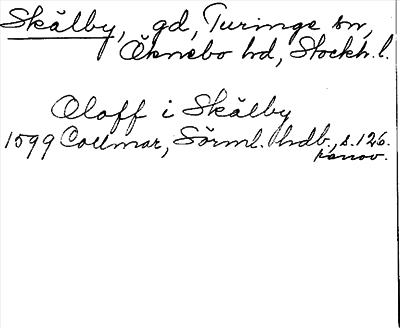 Skälby, gd, Turinge sn,
Öknebo hd, Stockh. l.
Oloff i Skälby
1599 Collmar, Sörml. hdb., s. 126.